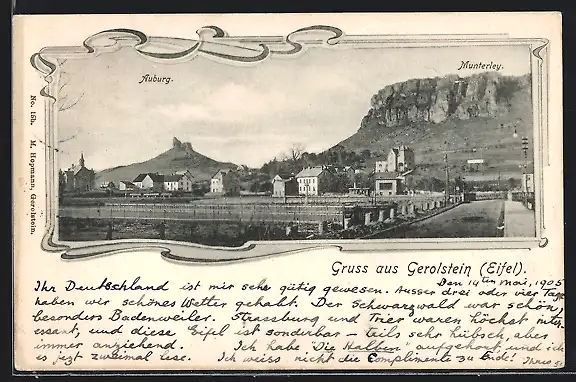 Auburg.
Munterley.
No. 15h. M. Hopmann, Gerolstein.
Gruss aus Gerolstein (Eifel).
Den 14ten Mai, 1905
Ihr Deutschland ist mir sehr gütig gewesen. Ausser drei oder vier Tage
haben wir schönes Wetter gehabt. Der Schwarzwald war schön,
besonders Badenweiler. Strassburg und Trier waren höchst inter-
essant, und diese Eifel ist sonderbar - teils sehr hübsch, aber
immer anziehend. Ich habe "Die Halben" aufgehört und ich
es jezt zweimal lese. Ich weiss nicht die Complimente zu Ende! Ihre